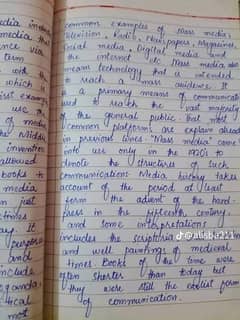 edia inclu
media that
ence via
term
with the
which is
ist example
use
of media
the Middle
invention
allowed
books to
media
in
ctines
ay. It
purpose
and
include
aganda
itical
most
common examples of mass media
Television, Radio, Newspapers, Magazines,
Social media, Digital media and
the internet etc. Mass media also
means technology that is intended
to reach a mass audience. It
is a primary means of communicatio
used to reach the vast majority
of the general public. that most
common platforms are explain ahead
in previous lines "Mass media" came
into use only in the 1920s to
denote the structure of such
communications Media history takes
account of the period at least
form the advent of the hand-
press in the fifteenth century.
and some interpretations
includes the scriptoria
and wall paintings of medieval
times. Books of the time were
often shorter than today but
they were still the earliest form
of communication.
@alisba211